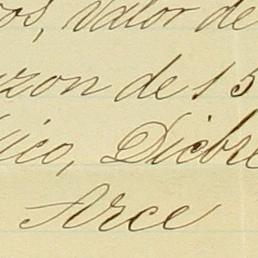 os, valor de
zon de 15
ico, Dicbre
Arce